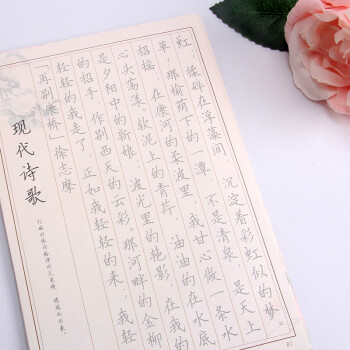 现代诗歌
「再别康桥」徐志摩
轻轻的我走了，正如我轻轻的来，我轻
的招手，作别西天的云彩。那河畔的金柳
是夕阳中的新娘 波光里的艳影，在我的
心头荡漾 软泥上的青荇 油油的在水底
招摇；在康河的柔波里 我甘心做一条水
草，那榆荫下的一潭 不是清泉，是天上
虹 揉碎在浮藻间，沉淀着彩虹似的梦。